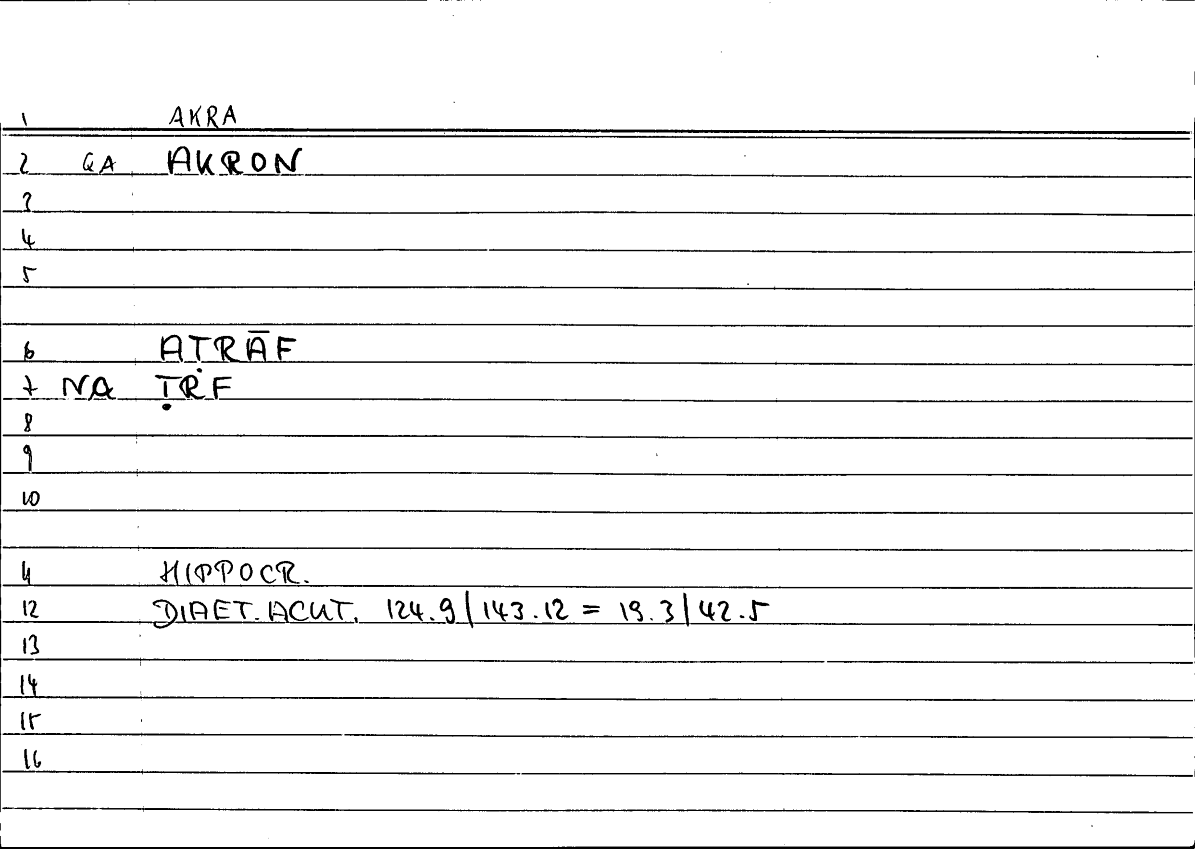 1 AKRA
2 GA AKRON
3
4
5
6 AṬRĀF
7 NA ṬRF
8
9
10
11 HIPPOCR.
12 DIAET. ACUT. 124.9/143.12 = 19.3/42.5
13
14
15
16